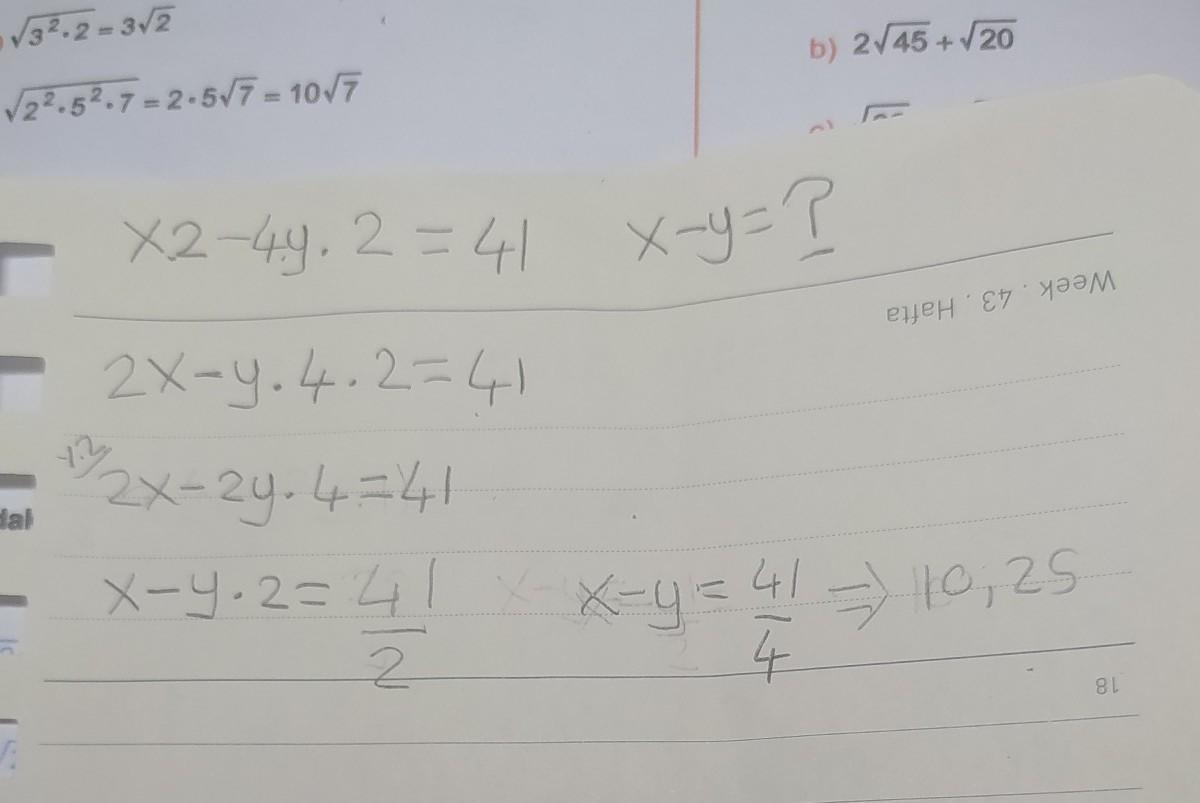 √3²·2 = 3√2
√2²·5²·7 = 2·5√7 = 10√7
b) 2√45 + √20
x2-4y.2=41 x-y=?
Week . 43 . Hafta
2x-y.4.2=41
2x-2y.4=41
x-y.2=41/2 x-y=41/4 ⇒ 10,25
18